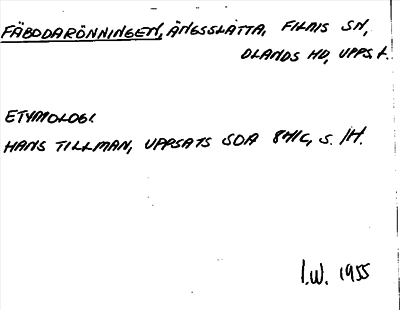 FÄBODARÖNNINGEN, ÄNGSSLÅTTA, FILMS SN,
OLANDS HD, UPPS.L.
ETYMOLOGI
HANS TILLMAN, UPPSATS SOA S. 14.
I.W. 1955